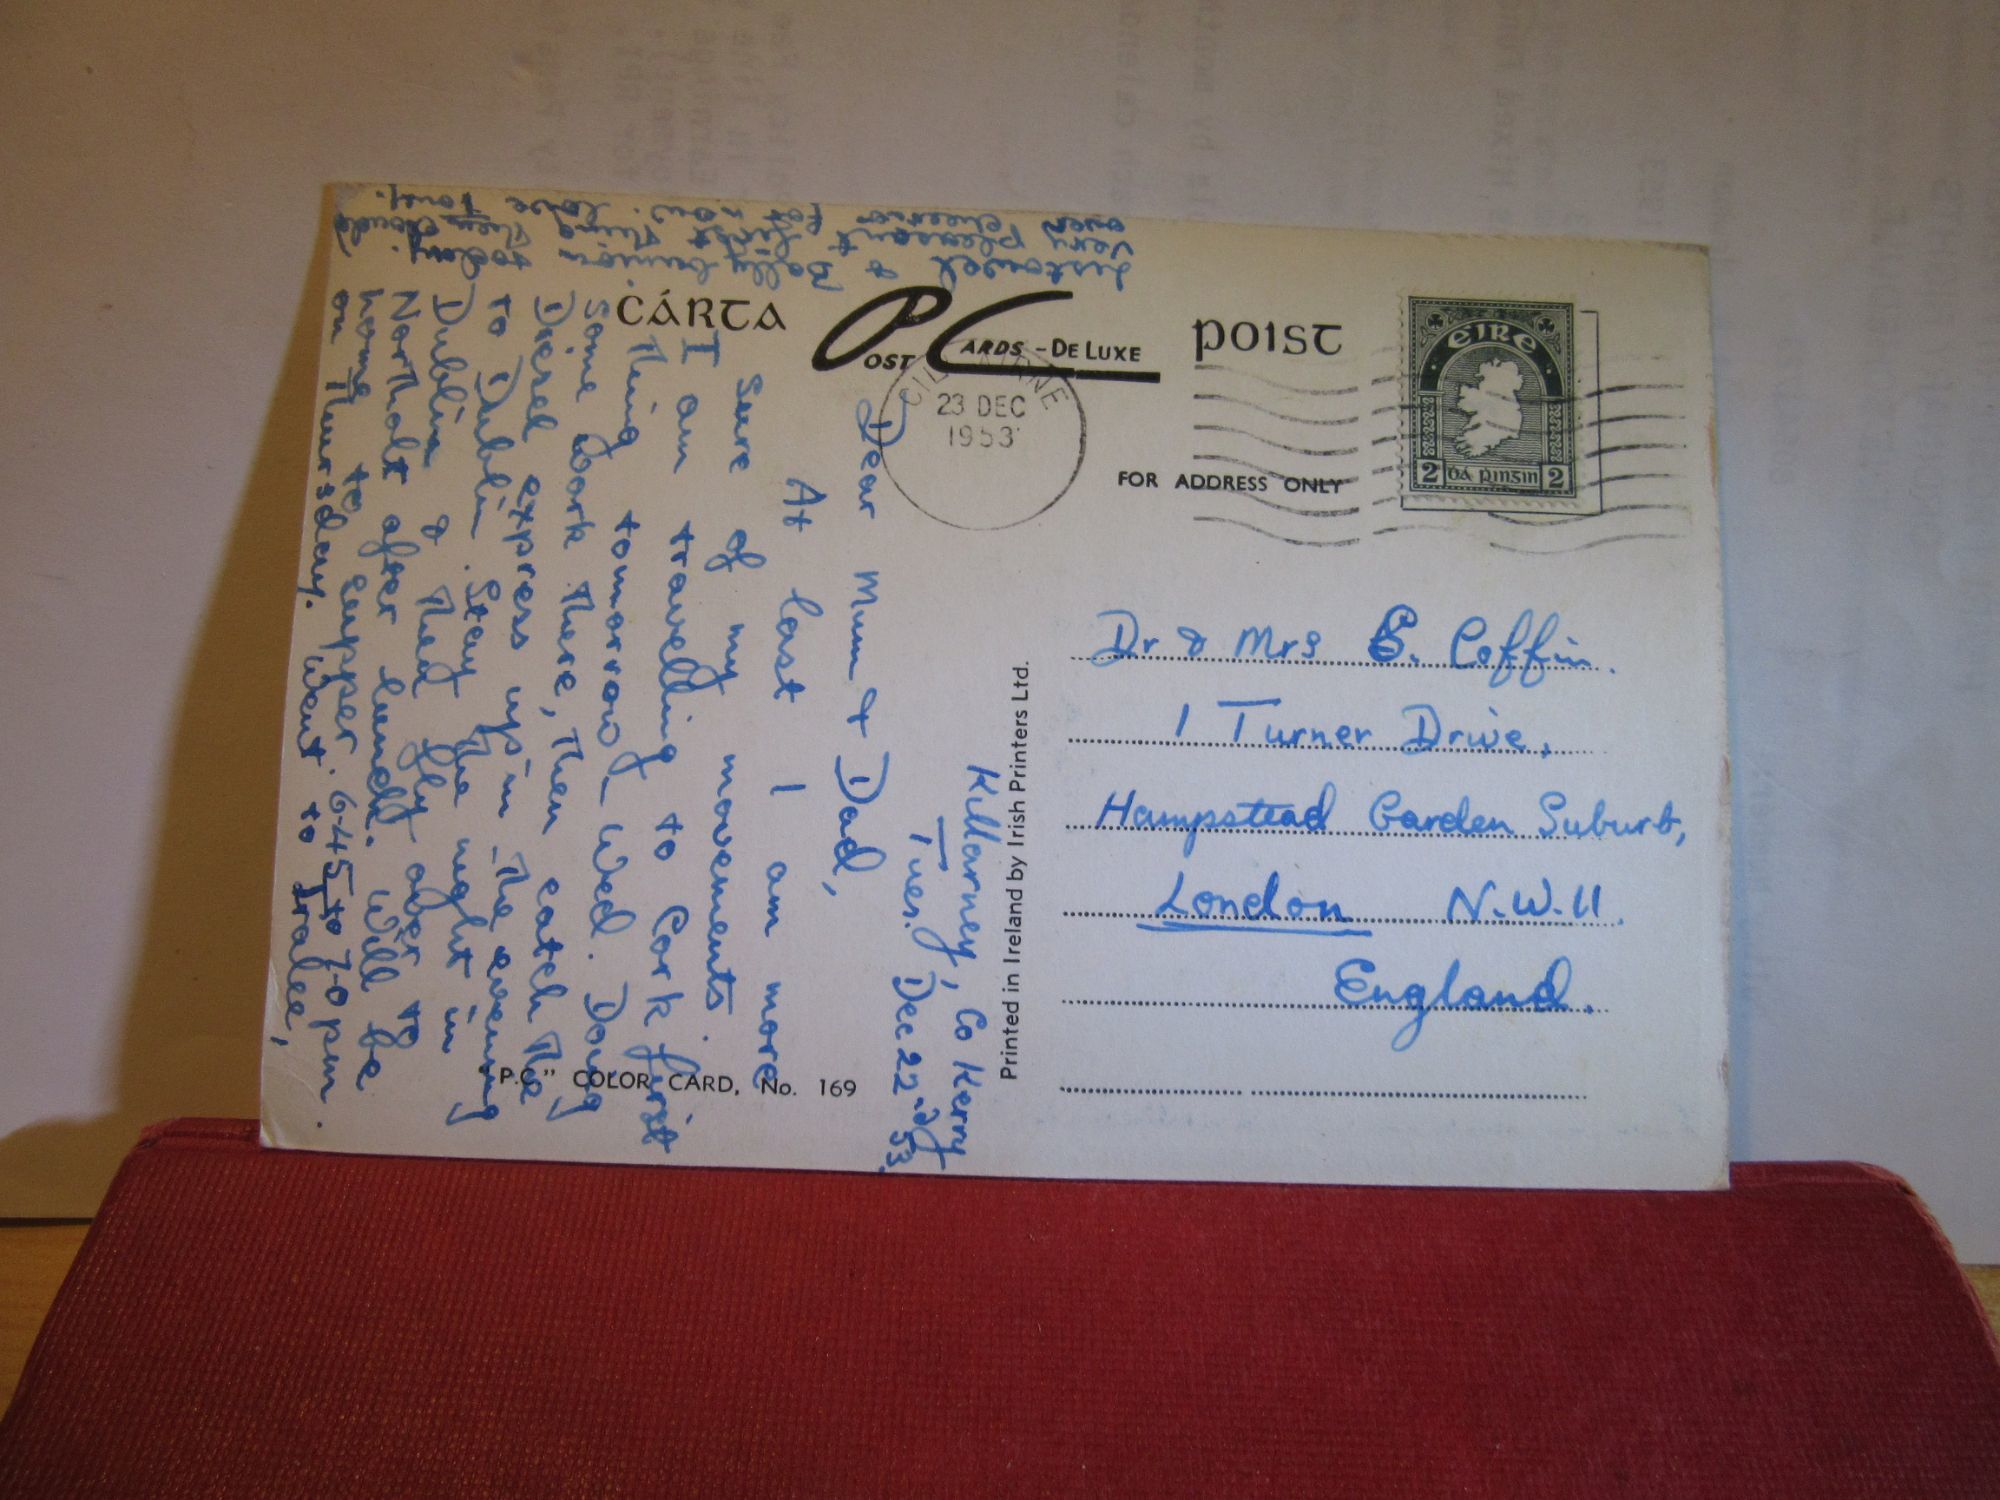 CÁRTA
POST CARDS - DE LUXE
POIST
CILL AIRNE
23 DEC
1953
ÉIRE
2 DÁ PINGIN 2
FOR ADDRESS ONLY
Dr & Mrs E. Coffin.
1 Turner Drive,
Hampstead Garden Suburb,
London N.W.11.
England.
Printed in Ireland by Irish Printers Ltd.
"P.C." COLOR CARD, No. 169
Killarney, Co Kerry
Tues. Dec 22nd 53
Dear Mum & Dad,
At last I am more
sure of my movements.
I am travelling to Cork first
thing tomorrow - Wed. Doing
some work there, then catch the
Diesel express up in the evening
to Dublin. Stay the night in
Dublin & then fly over to
Northolt after lunch. Will be
home to supper 6-45 to 7-0 pm.
on Thursday. Went to Tralee,
Listowel & Ballybunion today.
Very pleasant first thing then clouds
over. Cheerio for now. Love Tony.